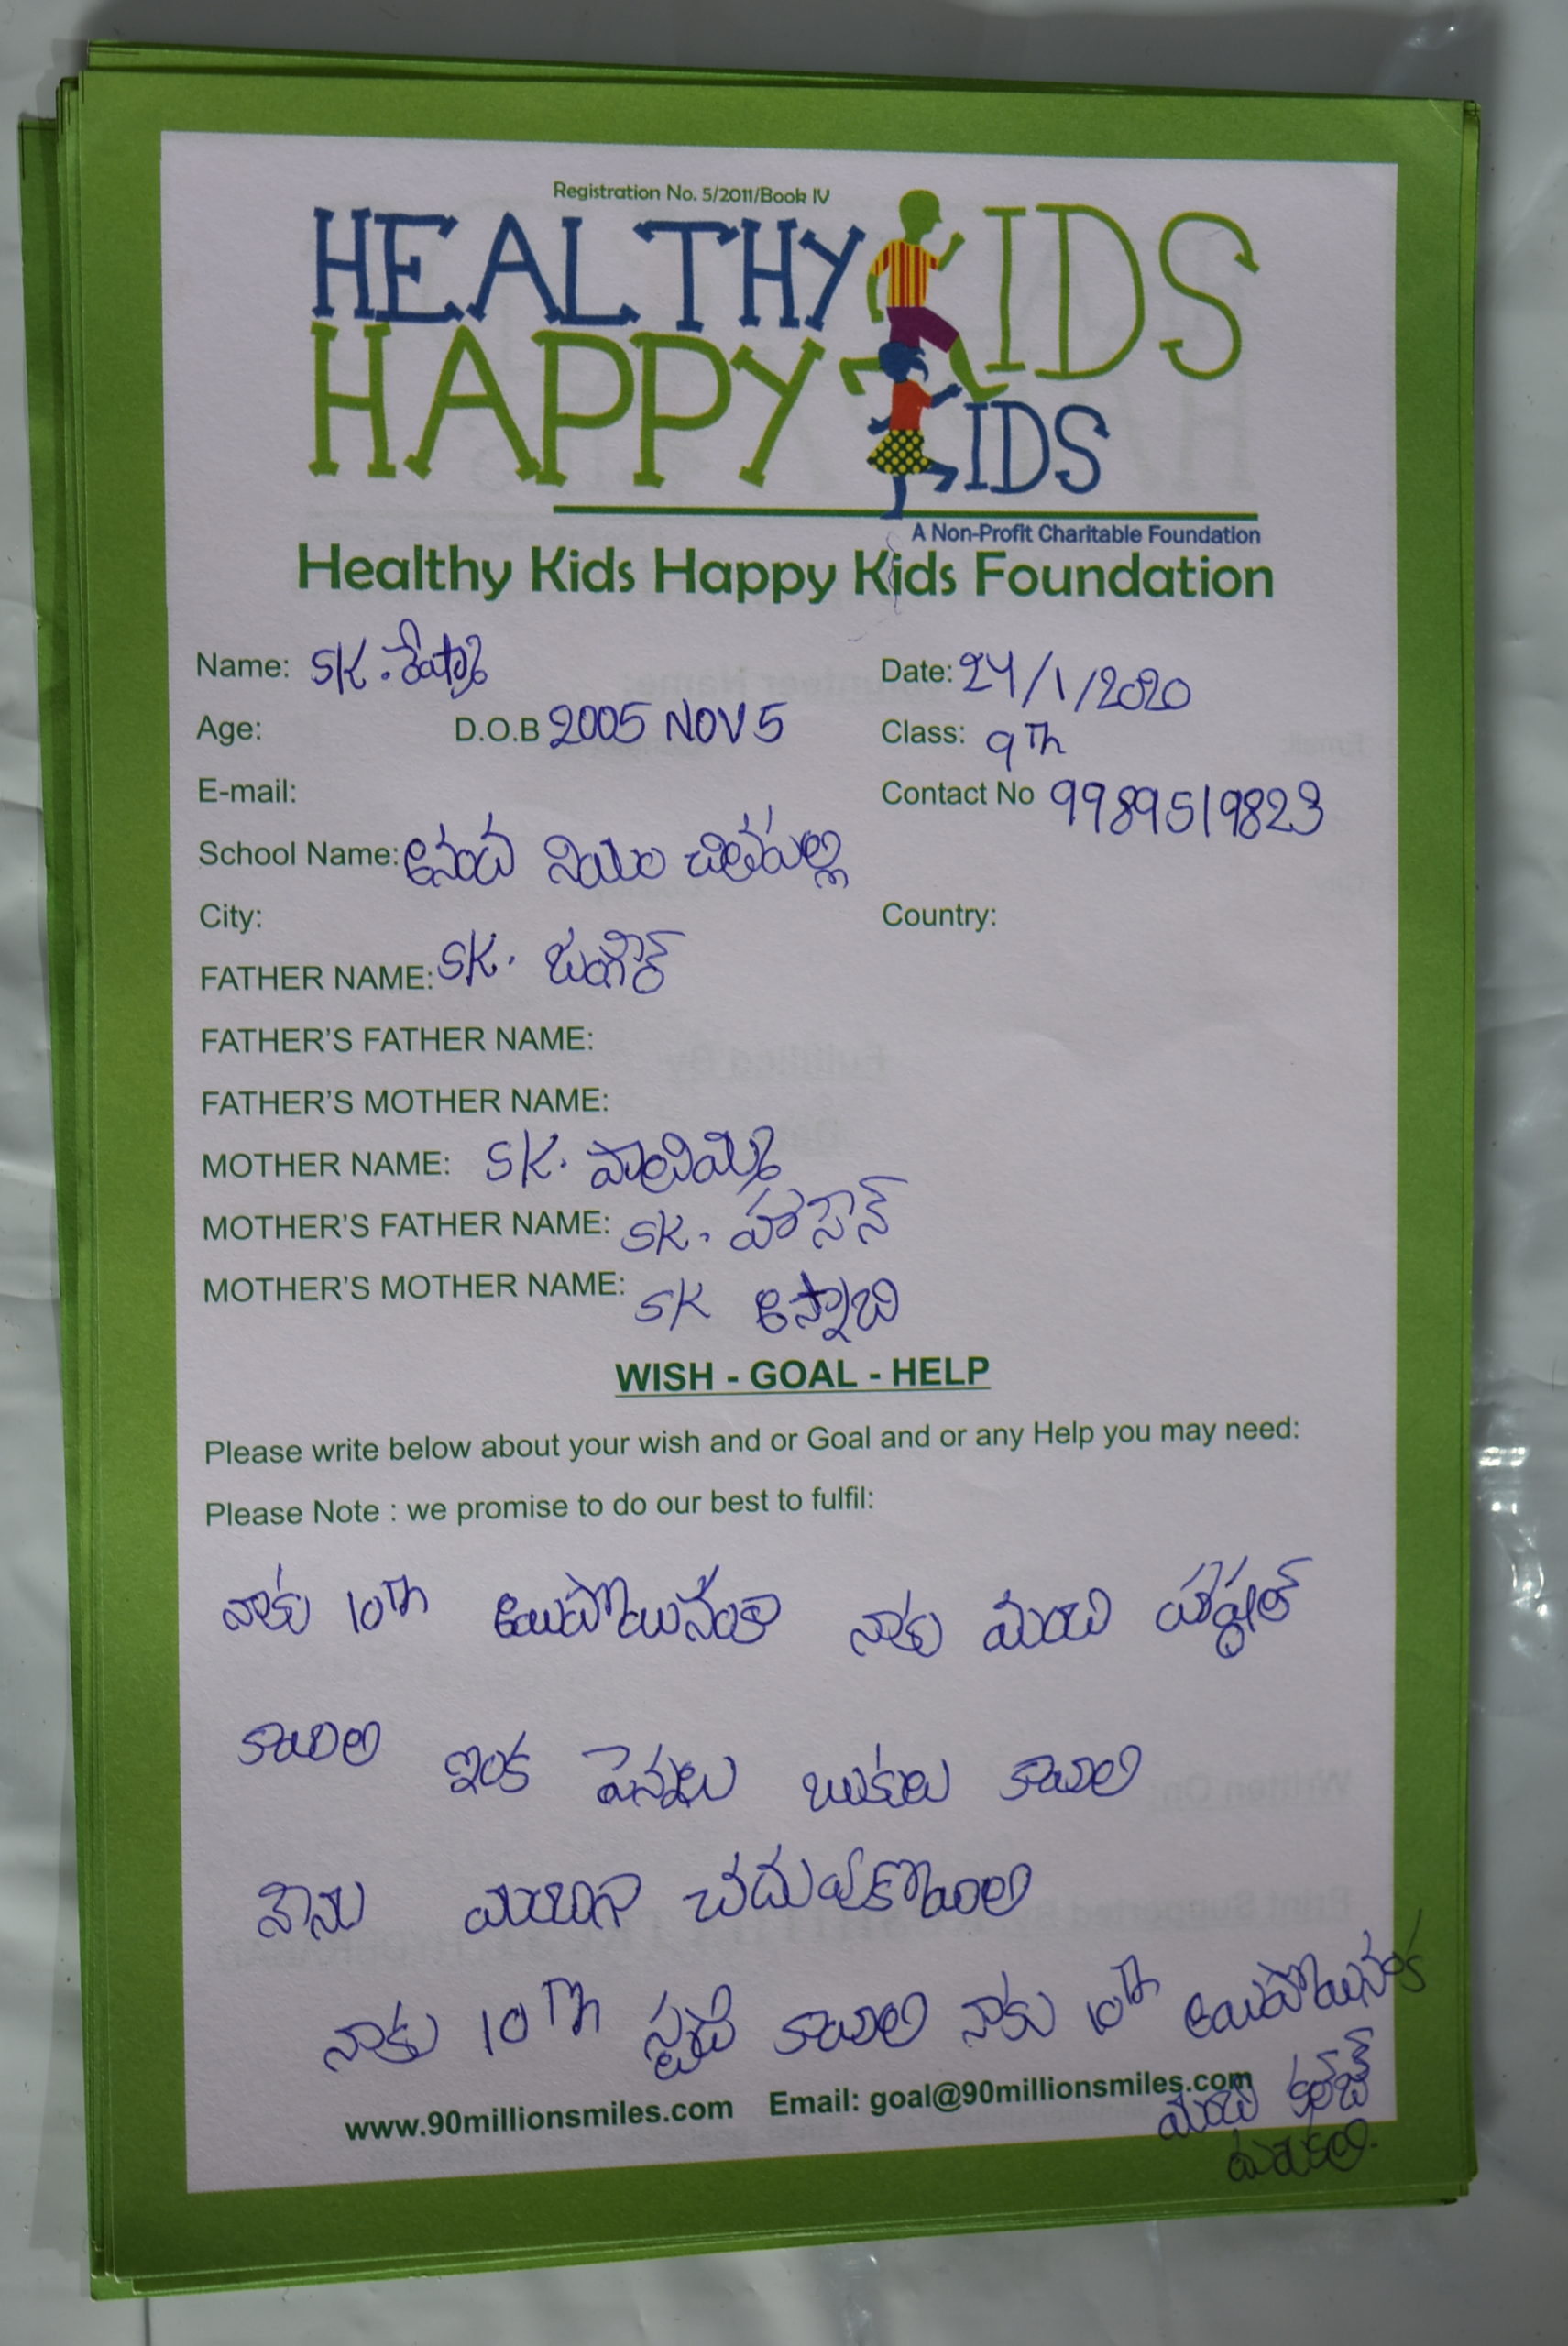 Registration No. 5/2011/Book IV
HEALTHY KIDS
HAPPY KIDS
A Non-Profit Charitable Foundation
Healthy Kids Happy Kids Foundation
Name: SK. రేష్మా Date: 24/1/2020
Age: D.O.B 2005 NOV 5 Class: 9Th
E-mail: Contact No 9989519823
School Name: ఆనంద
City: Country:
FATHER NAME: SK.
FATHER'S FATHER NAME:
FATHER'S MOTHER NAME:
MOTHER NAME: SK.
MOTHER'S FATHER NAME: SK. హాసెన్
MOTHER'S MOTHER NAME: SK
WISH - GOAL - HELP
Please write below about your wish and or Goal and or any Help you may need:
Please Note : we promise to do our best to fulfil:
నాకు 10Th అయిపోయినంక నాకు మంచి హాస్టల్
కావాలి ఇంక పెన్నులు బుకులు కావాలి
నేను మంచిగా చదువుకోవాలి
నాకు 10Th స్టడి కావాలి నాకు 10Th అయిపోయినంక
మంచి కాలేజ్
www.90millionsmiles.com Email: goal@90millionsmiles.com